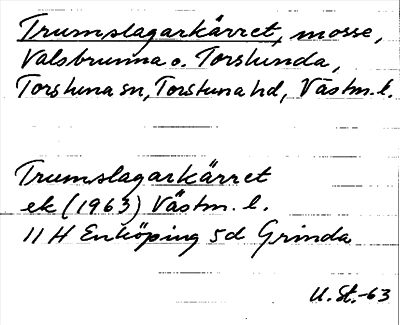 Trumslagarkärret, mosse,
Valsbrunna o. Torslunda,
Torstuna sn, Torstuna hd, Västm. l.
Trumslagarkärret
ek (1963) Västm. l.
11 H Enköping 5d Grinda
U. St.-63